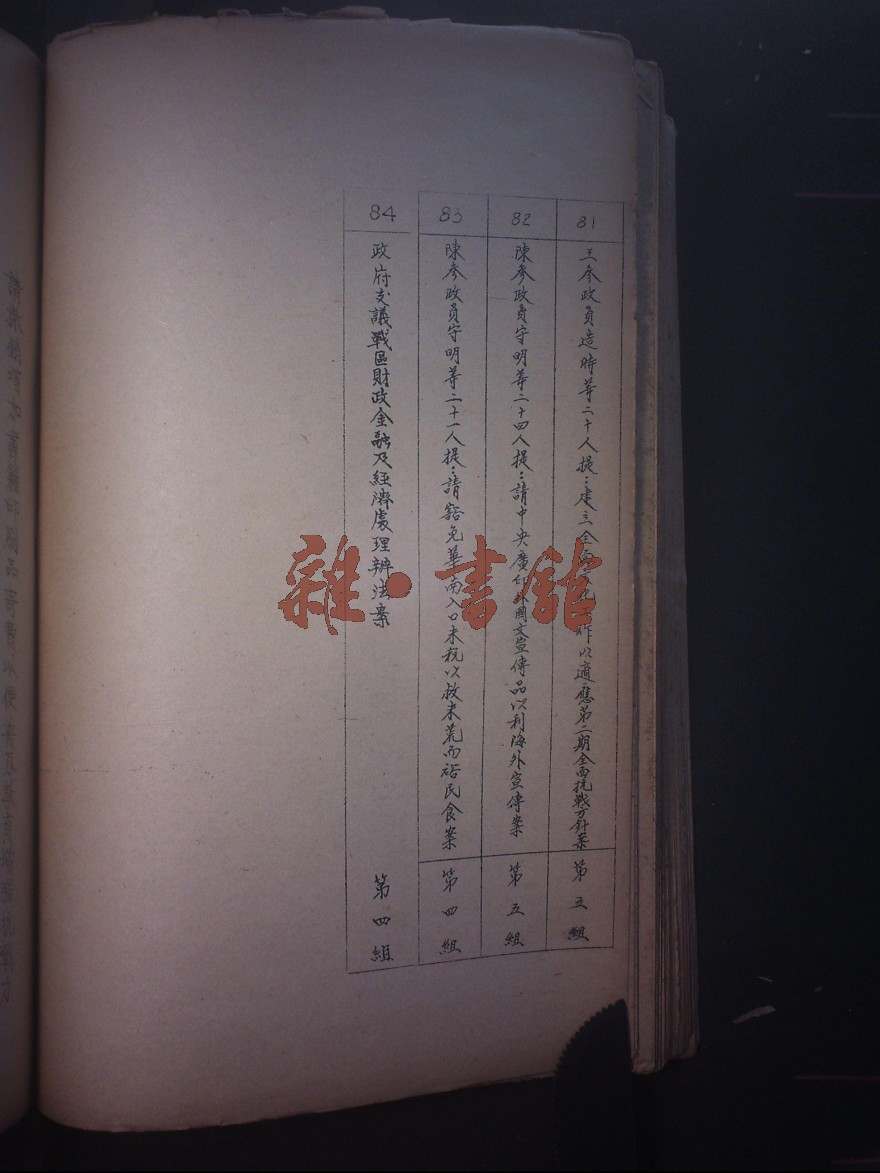 81
王參政員造時等二十人提：建立全面以適應第二期全面抗戰方針案
第五組
82
陳參政員守明等二十四人提：請中央廣印外國文宣傳品以利海外宣傳案
第五組
83
陳參政員守明等二十一人提：請豁免華南入口米稅以救米荒而裕民食案
第四組
84
政府交議戰區財政金融及經濟處理辦法案
第四組
雜·書館